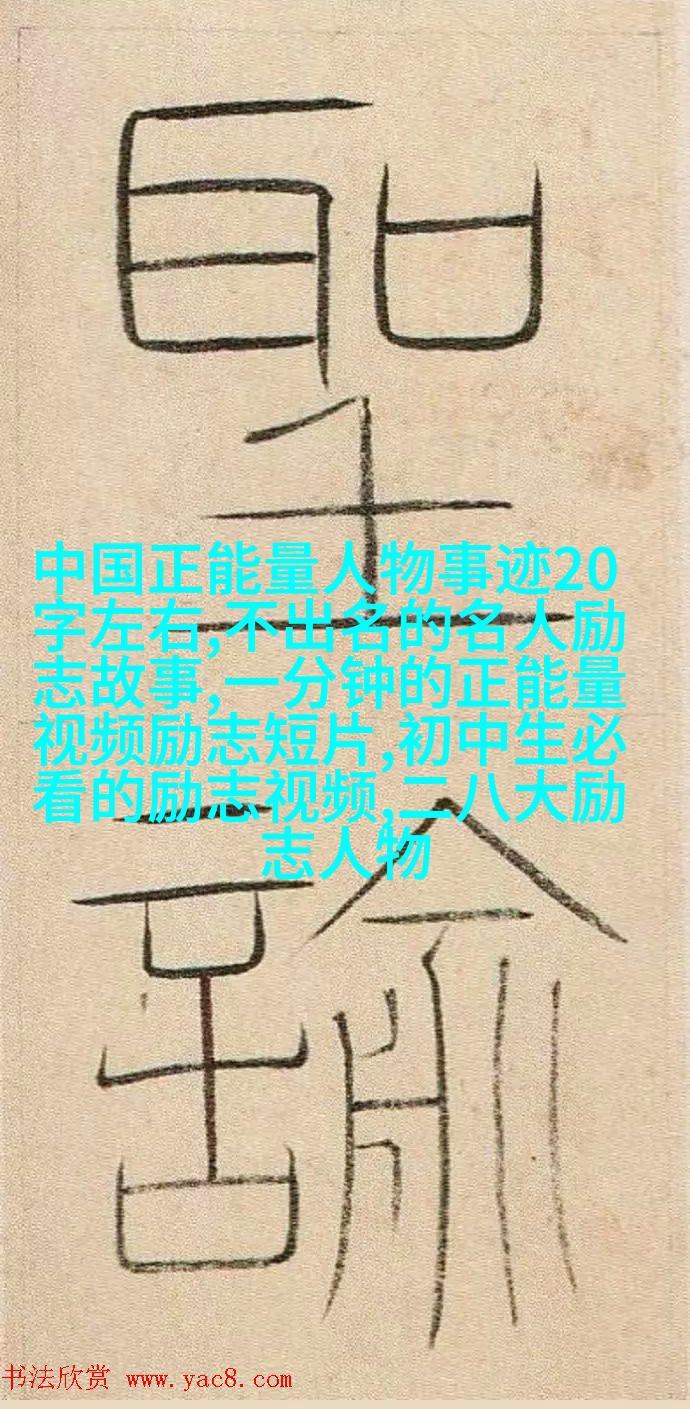 聖
中国正能量人物事迹20
字左右,不出名的名人励
志故事,一分钟的正能量
视频励志短片,初中生必
看的励志视频,二八大励
志人物
諭
书法欣赏 www.yac8.com